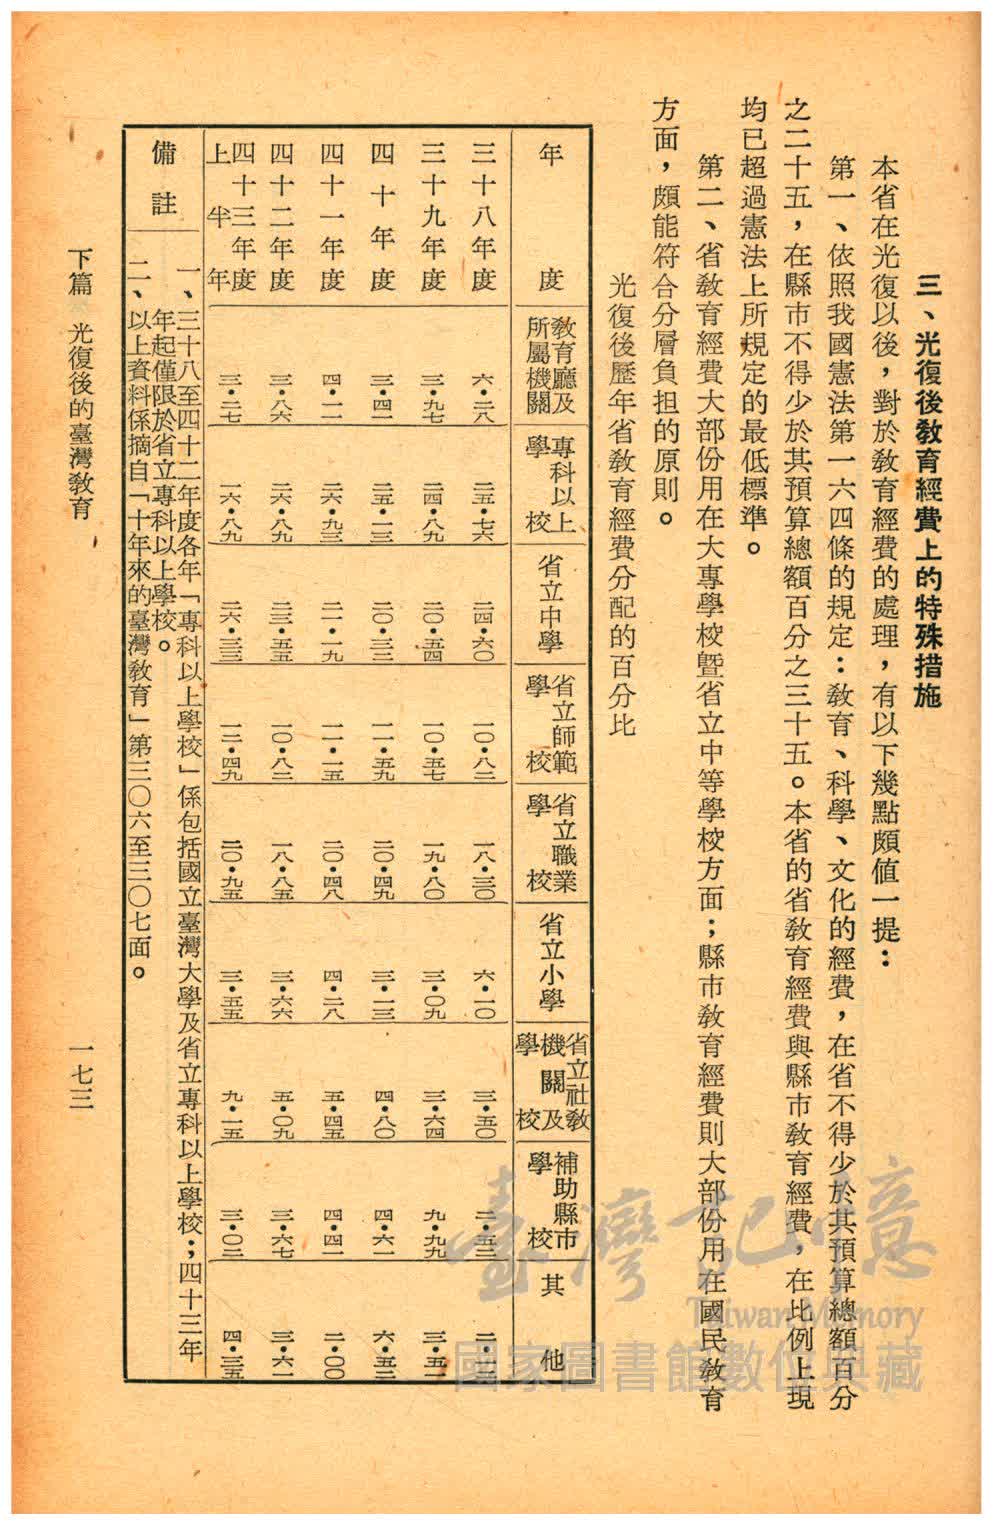 三、光復後教育經費上的特殊措施
本省在光復以後，對於教育經費的處理，有以下幾點頗值一提：
第一、依照我國憲法第一六四條的規定：教育、科學、文化的經費，在省不得少於其預算總額百分
之二十五，在縣市不得少於其預算總額百分之三十五。本省的省教育經費與縣市教育經費，在比例上現
均已超過憲法上所規定的最低標準。
第二、省教育經費大部份用在大專學校暨省立中等學校方面；縣市教育經費則大部份用在國民教育
方面，頗能符合分層負担的原則。
光復後歷年省教育經費分配的百分比
年度 教育廳及所屬機關 專科以上學校 省立中學 省立師範學校 省立職業學校 省立小學 省立社教機關及學校 補助縣市學校 其他
三十八年度 六・二八 二五・七六 二四・六〇 一〇・八二 一八・三〇 六・一〇 三・五〇 二・五二 二・一二
三十九年度 三・九七 二四・八九 二〇・五四 一〇・五七 一九・八〇 三・〇九 三・六四 九・九九 三・五一
四十年度 三・四一 二五・一三 二〇・三二 一一・五九 二〇・四九 三・一三 四・八〇 四・六一 六・五二
四十一年度 四・一一 二六・九三 二一・一九 一一・一五 二〇・四八 四・二八 五・四五 四・四一 二・〇〇
四十二年度 三・八六 二六・八九 二三・五五 一〇・八二 一八・八五 三・六六 五・〇九 三・六七 三・六一
四十三年度上半年 三・二七 一六・八九 二六・三三 一二・四九 二〇・九五 三・五五 九・一五 三・〇二 四・三五
備註
一、三十八至四十二年度各年「專科以上學校」係包括國立臺灣大學及省立專科以上學校；四十三年
年起僅限於省立專科以上學校。
二、以上資料係摘自「十年來的臺灣教育」第三〇六至三〇七面。
下篇 光復後的臺灣教育
一七三
臺灣記憶
Taiwan Memory
國家圖書館數位典藏